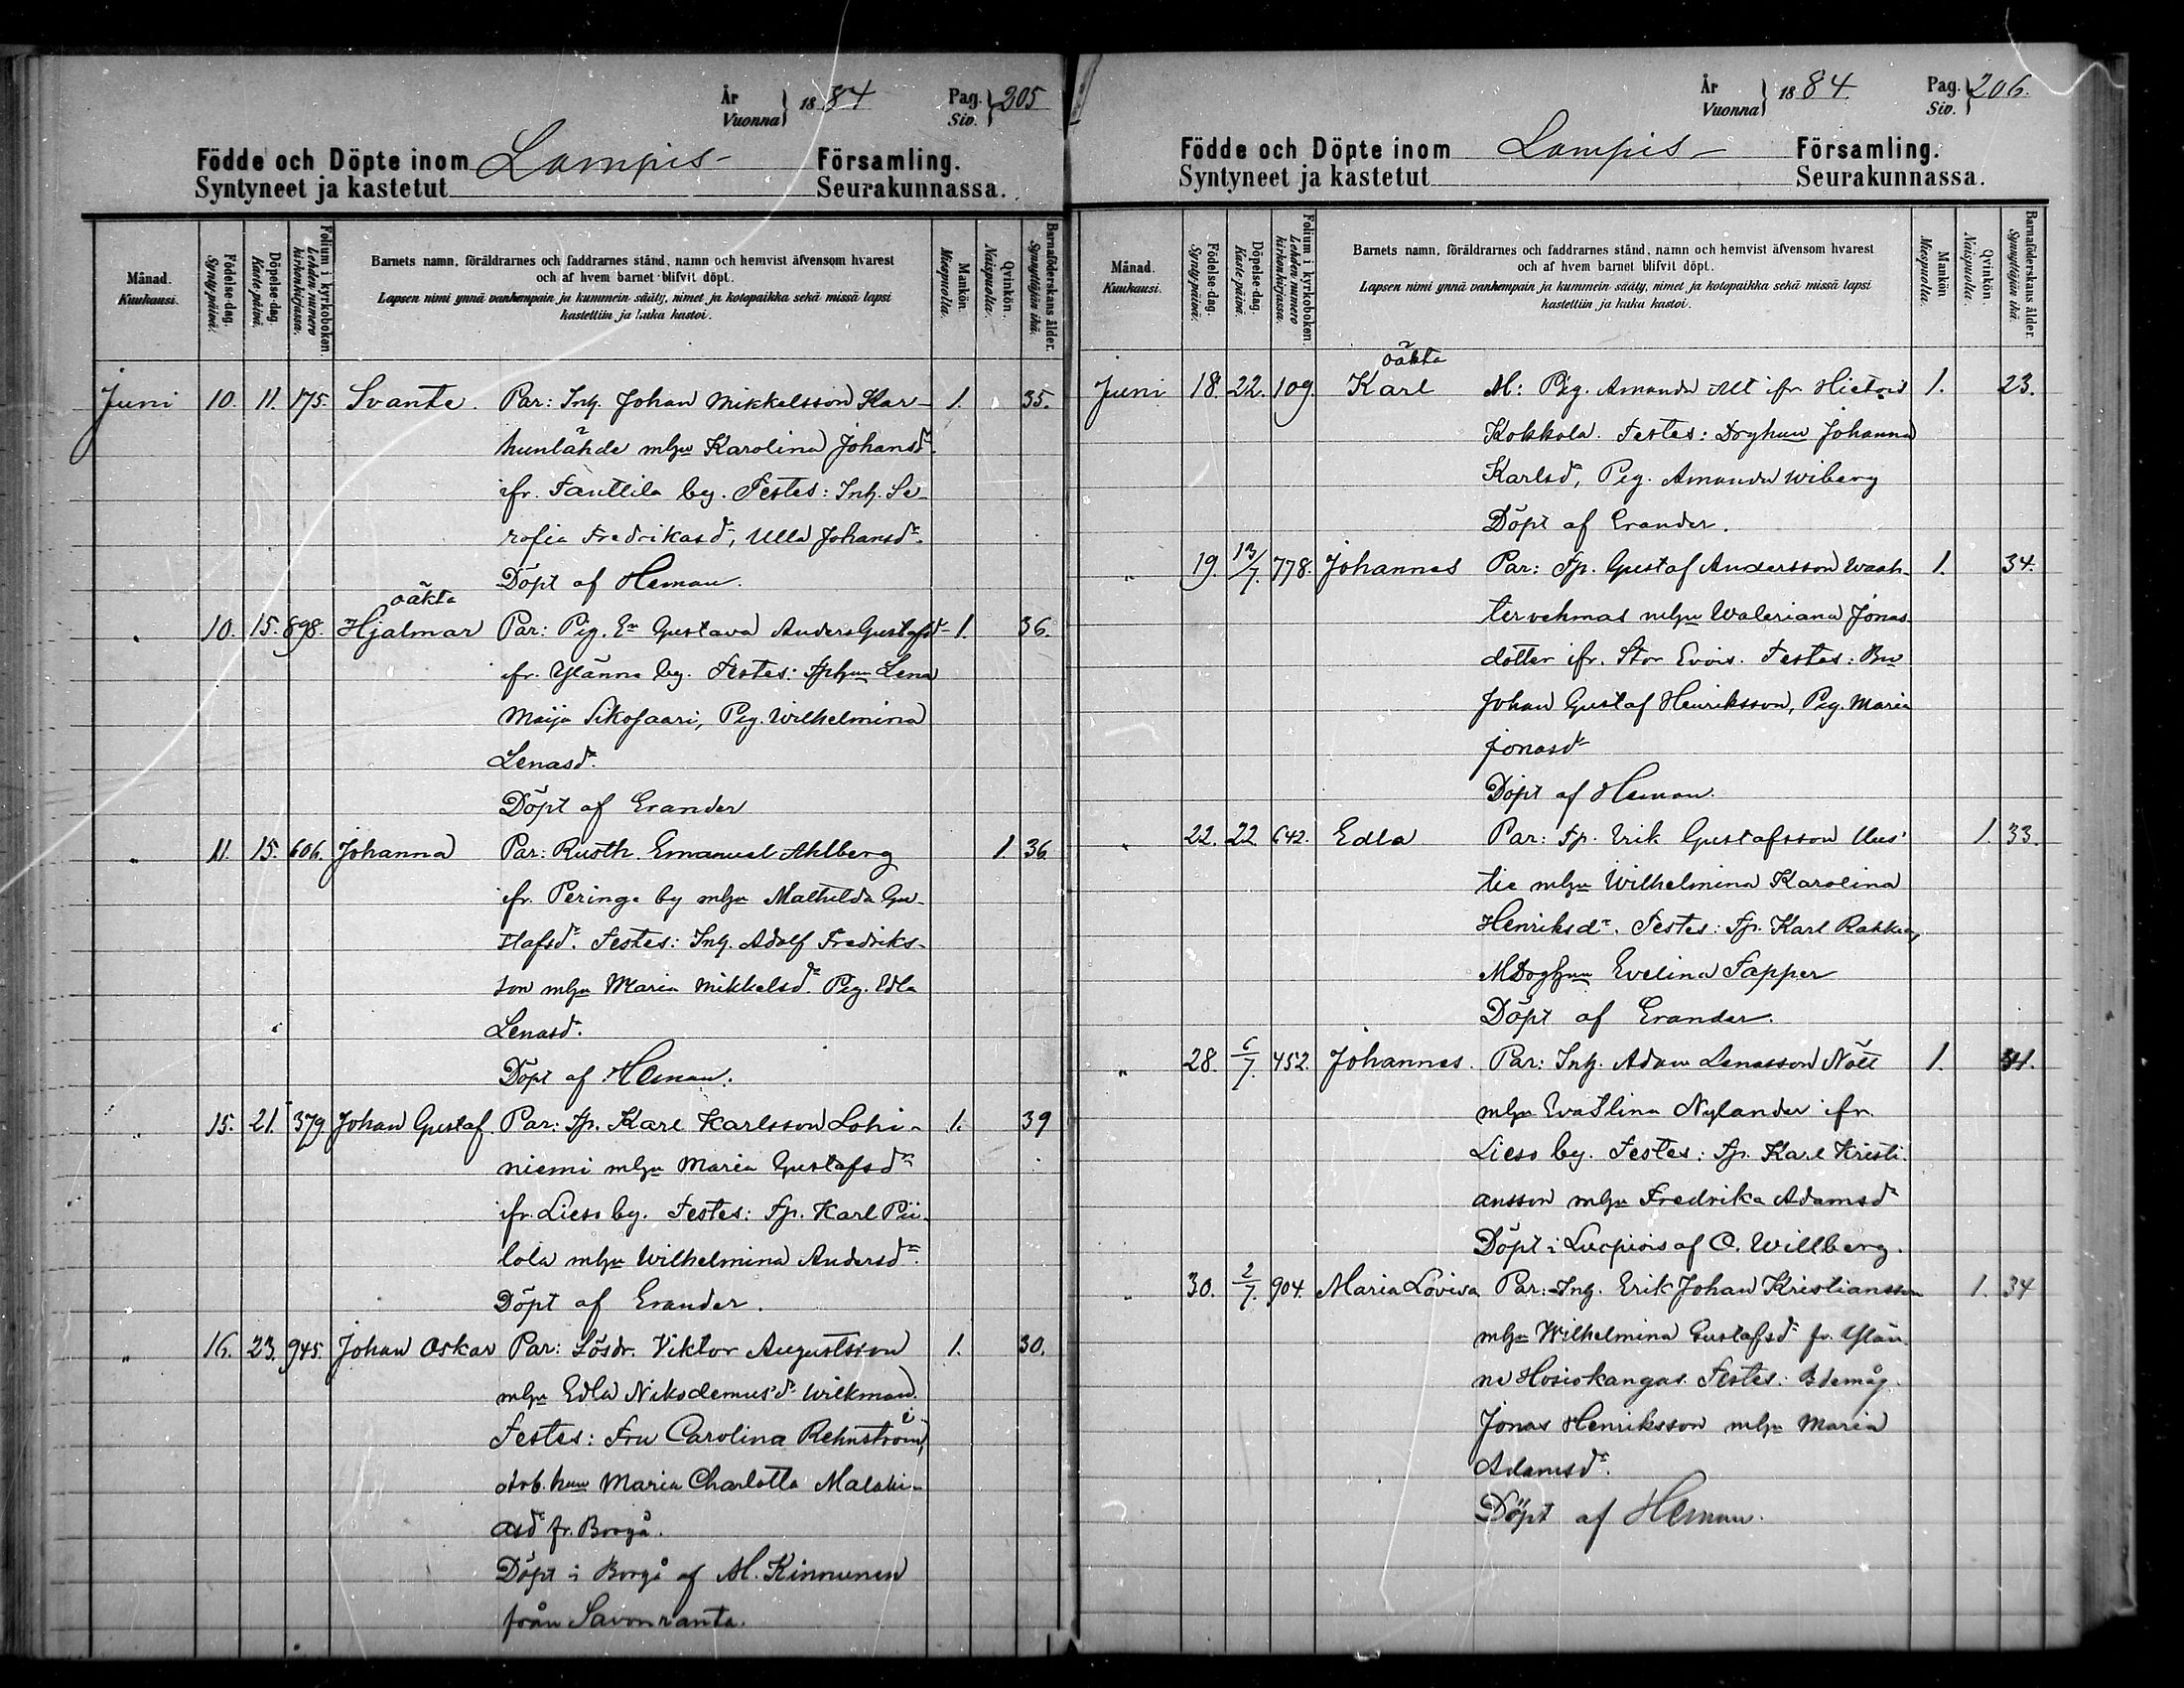 År
Vuonna } 1884 Pag.
Siv. } 205
Födde och Döpte inom Lampis Församling.
Syntyneet ja kastetut Seurakunnassa.
Månad.
Kuukausi.
Födelse-dag.
Syntypäivä.
Döpelse-dag.
Kastepäivä.
Folium i kyrkoboken.
Lehden numero
kirkonkirjassa.
Barnets namn, föräldrarnes och faddrarnes stånd, namn och hemvist äfvensom hvarest
och af hvem barnet blifvit döpt.
Lapsen nimi ynnä vanhempain ja kummein sääty, nimet ja kotopaikka sekä missä lapsi
kastettiin ja kuka kastoi.
Mankön.
Miespuolia.
Qvinkön.
Naispuolia.
Barnaföderskans ålder.
Synnyttäjän ikä.
Juni 10. 11. 175. Svante. Par: Inh. Johan Mikkelsson Kar- 1. 35.
hunlähde mhu Karolina Johansdr
ifr. Tanttila by. Testes: Inh. Se-
rafia Fredrikasdr, Ulla Johansdr.
Döpt af Heman.
oäkta
" 10. 15. 898. Hjalmar Par: Pig. En Gustava Anders Gustafsdr 1. 36.
ifr. Ylänne by. Testes: Tphun Lena
Maija Sikosaari, Pig. Wilhelmina
Lenasdr.
Döpt af Evander
" 11. 15. 606. Johanna Par: Rusth. Emanuel Ahlberg 1. 36
ifr. Peringe by mhu Mathilda Gu-
stafsdr. Testes: Inh. Adolf Fredriks-
son mhu Maria Mikkelsdr. Pig. Edla
Lenasdr.
Döpt af Heman.
" 15. 21. 379 Johan Gustaf. Par: Tp. Karl Karlsson Lohi- 1. 39
niemi mhu Maria Gustafsdr
ifr. Lieso by. Testes: Tp. Karl Pii-
lola mhu Wilhelmina Andersdr.
Döpt af Evander.
" 16. 23. 945. Johan Oskar Par: Lösdr. Viktor Augustsson 1. 30.
mhu Edla Nikodemusdr Wilkman.
Testes: Fru Carolina Rehnström,
Arb. hun Maria Charlotta Malaki-
asdr fr. Borgå.
Döpt i Borgå af M. Kinnunen
från Savonranta.
År
Vuonna } 1884. Pag.
Siv. } 206.
Födde och Döpte inom Lampis Församling.
Syntyneet ja kastetut Seurakunnassa.
Månad.
Kuukausi.
Födelse-dag.
Syntypäivä.
Döpelse-dag.
Kastepäivä.
Folium i kyrkoboken.
Lehden numero
kirkonkirjassa.
Barnets namn, föräldrarnes och faddrarnes stånd, namn och hemvist äfvensom hvarest
och af hvem barnet blifvit döpt.
Lapsen nimi ynnä vanhempain ja kummein sääty, nimet ja kotopaikka sekä missä lapsi
kastettiin ja kuka kastoi.
Mankön
Miespuolia.
Qvinkön.
Naispuolia.
Barnaföderskans ålder.
Synnyttäjän ikä.
oäkta
Juni 18. 22. 109. Karl M: Pig. Amanda Alt ifr. Hietois 1. 23.
Kokkola. Testes: Drghun Johanna
Karlsd, Pig. Amanda Wiberg
Döpt af Evander.
" 19. 13/7. 778. Johannes Par: Tp. Gustaf Andersson Waah- 1. 34.
tervehmas mhu Waleriana Jonas
dotter ifr. Stor Evois. Testes: Bn
Johan Gustaf Henriksson, Pig. Maria
Jonasdr
Döpt af Heman.
" 22. 22. 642. Edla Par: Tp. Erik Gustafsson Uus- 1. 33.
tie mhu Wilhelmina Karolina
Henriksdr. Testes: Tp. Karl
Evelina Tapper
Döpt af Evander.
" 28. 6/7. 452. Johannes. Par: Inh. Adam Lenasson Nätt 1. 31.
mhu Eva Stina Nylander ifr.
Lieso by. Testes: Tp. Karl Kristi-
ansson mhu Fredrika Adamsdr
Döpt i Luopiois af O. Willberg.
" 30. 2/7. 904. Maria Lovisa Par: Inh. Erik Johan Kristiansson 1. 34
mhu Wilhelmina Gustafsdr fr. Ylän-
ne Hosiokangas. Testes: Bdemåg
Jonas Henriksson mhu Maria
Adamsdr.
Döpt af Heman.